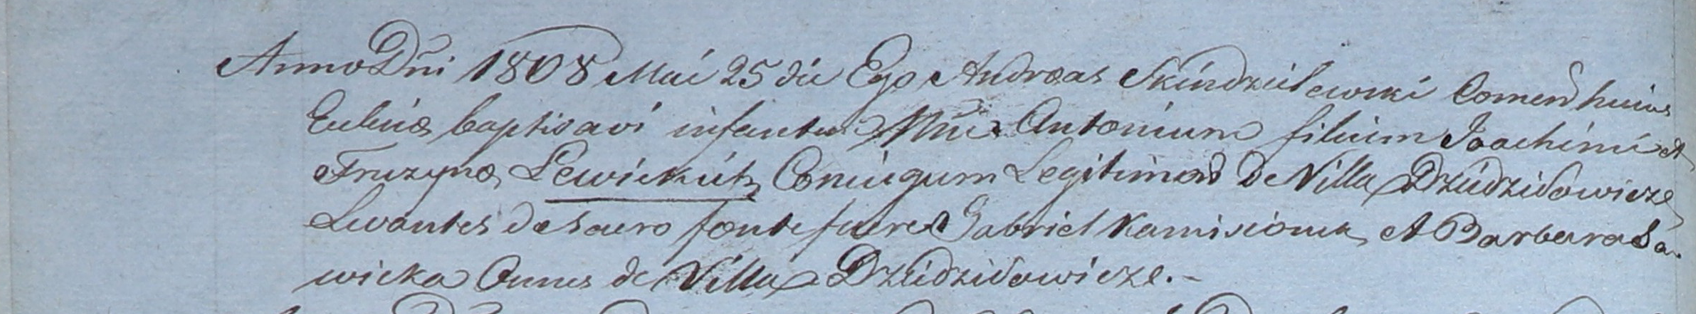 Anno Dni 1808 Mai 25 die Ego Andreas Skindzielewski Comend huius
Eccliae baptisavi infantem Nne Antonium filium Joachimi et
Fruzynae Lewickich Coniugum Legitimor de Villa Dziedzidowicze
Levantes de sacro fonte fuere Gabriel Kamisionek et Barbara Sa-
wicka Omnes de Villa Dziedzidowicze.-